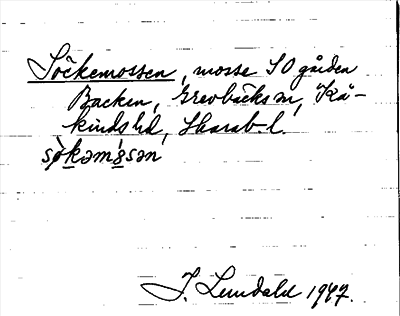 Söckemossen, mosse SO gården
Backen, Grevbäcks sn, Kå-
kinds hd, Skarab. l.
søkəmɔsən
J. Lundahl 1947.